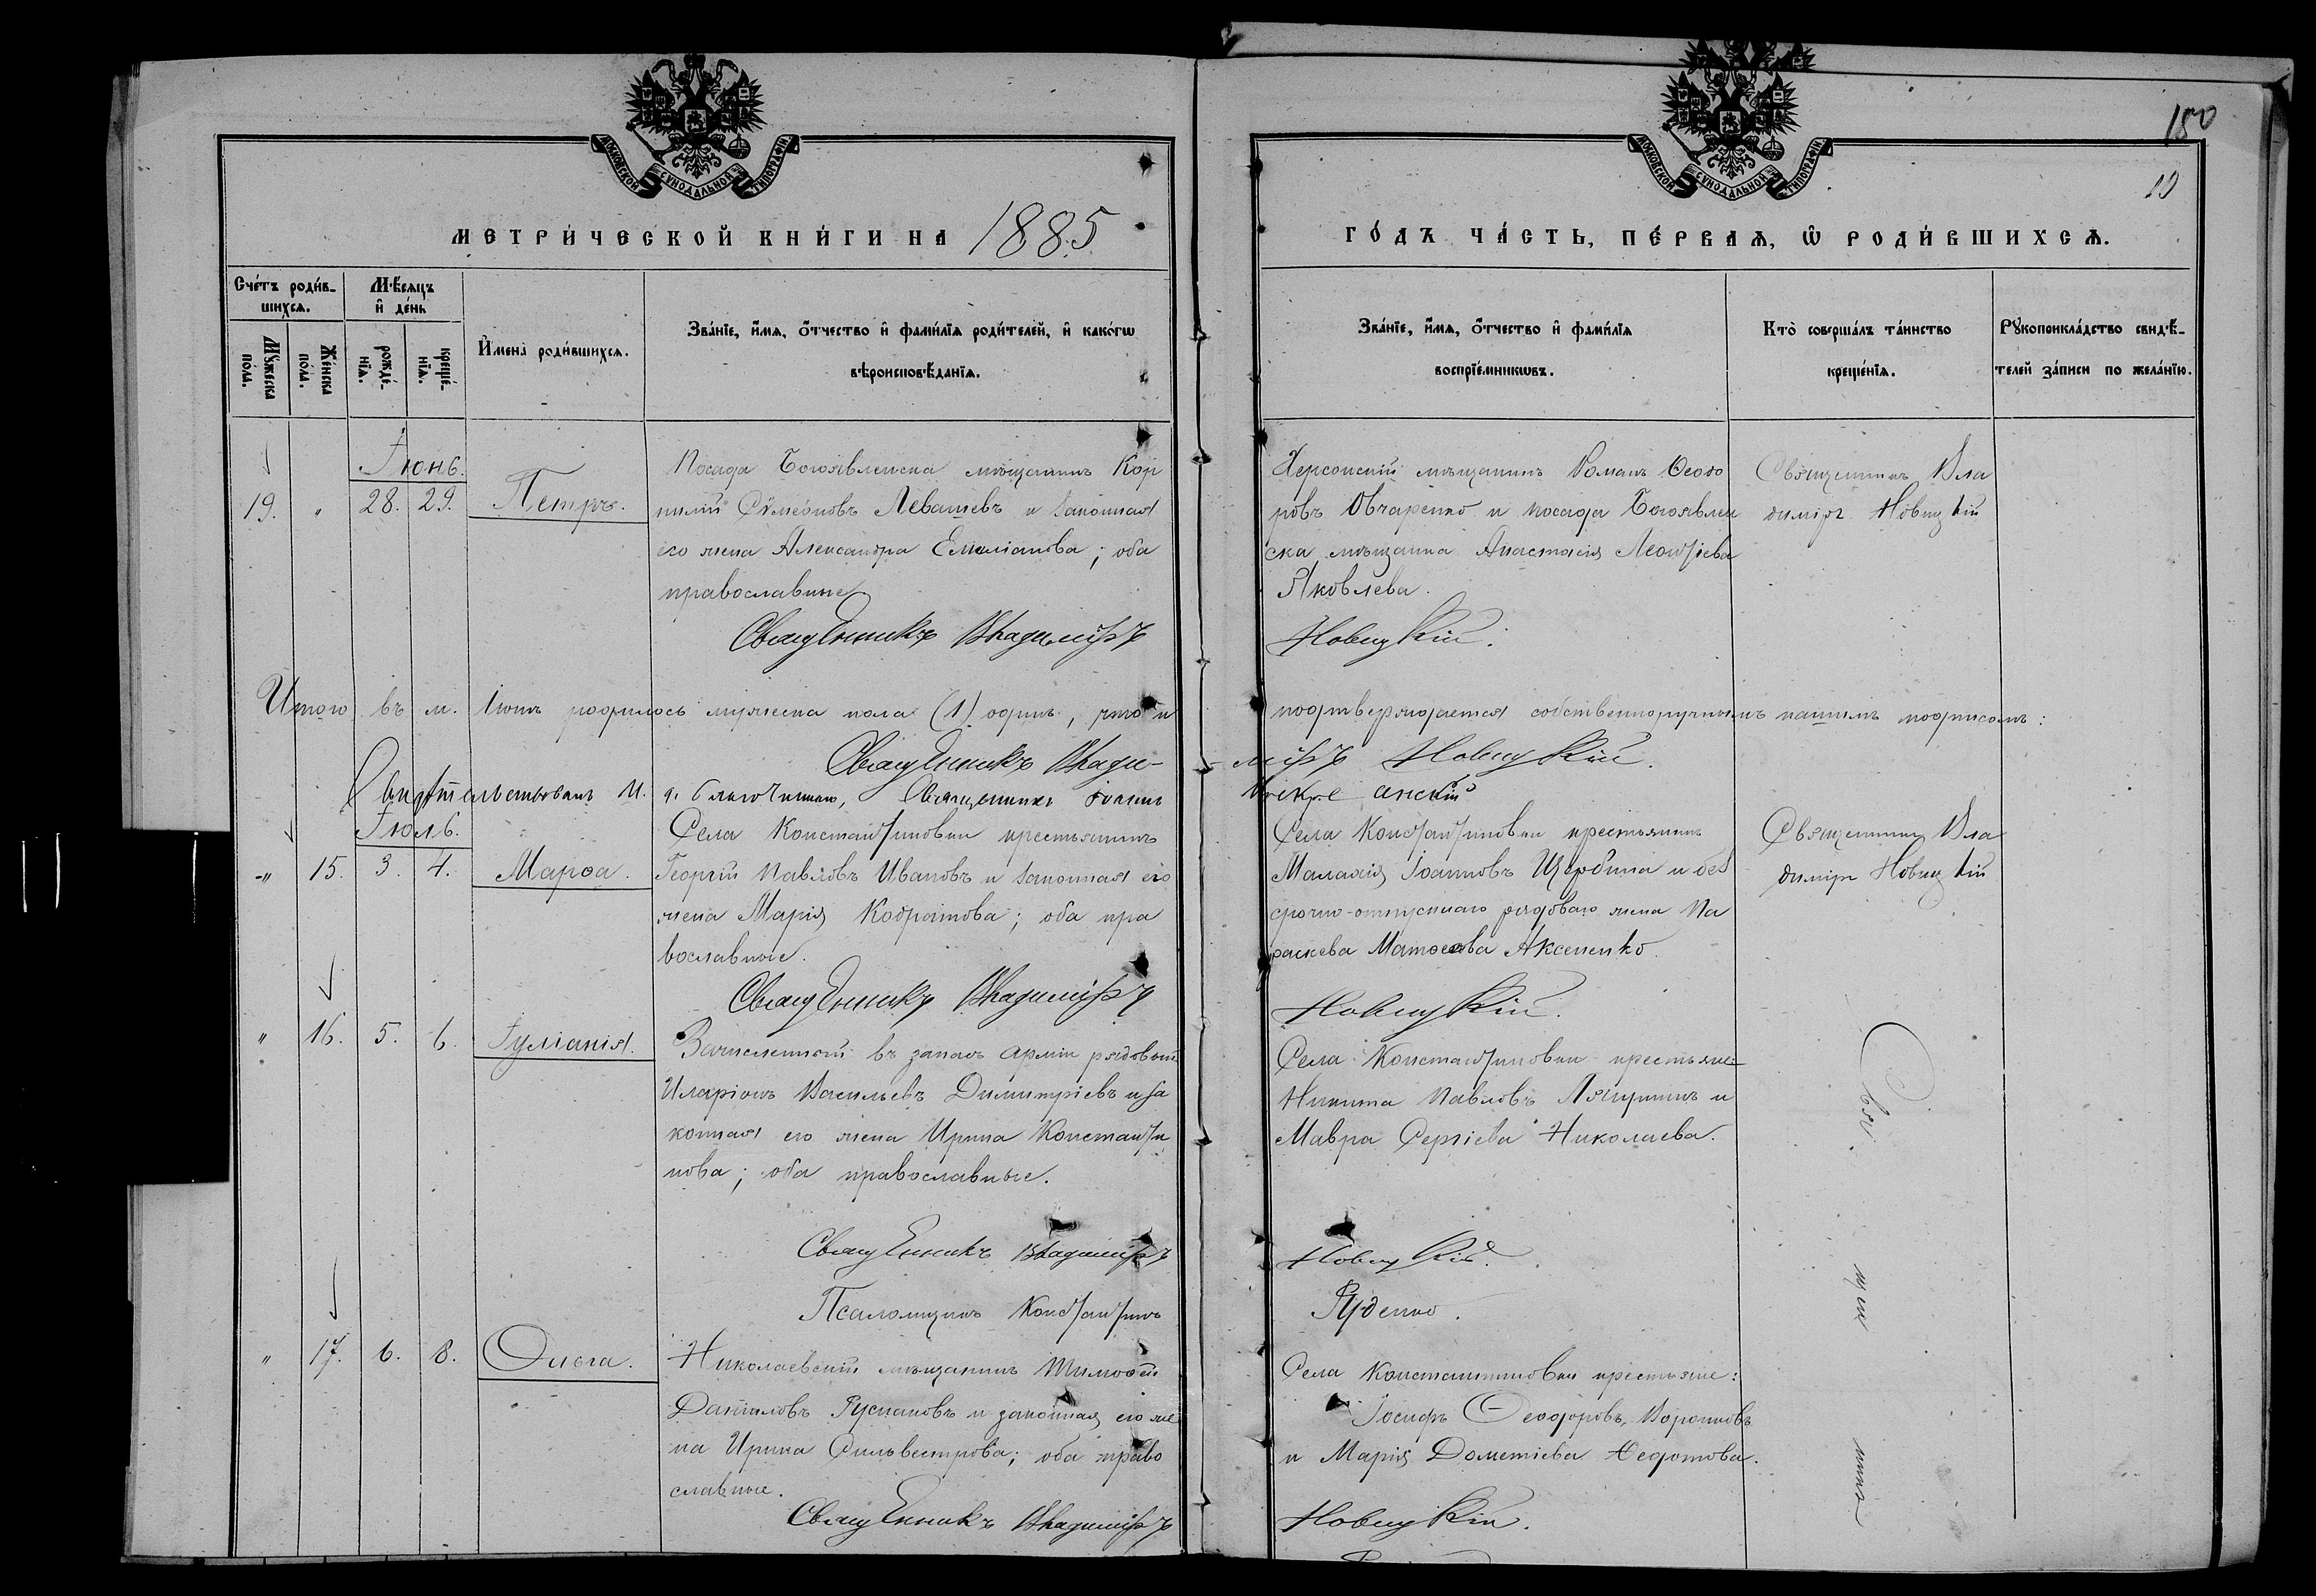 150
10
МОСКОВСКОЙ СѴНОДАЛЬНОЙ ТИПОГРАФІИ
МОСКОВСКОЙ СѴНОДАЛЬНОЙ ТИПОГРАФІИ
МЕТРИ́ЧЕСКОЙ КНИ́ГИ НА 1885
ГО́ДЪ ЧА́СТЬ, ПЕ́РВАѦ, Ѡ҆ РОДИ́ВШИХСѦ.
Счéтъ роди́в-
шихсѧ.
Мꙋ́жеска
по́ла.
Же́нска
по́ла.
Мѣ́сѧцъ
и҆ де́нь
рожде́-
нїѧ.
креще́-
нїѧ.
И҆мена̀ роди́вшихсѧ.
Зва́нїе, и҆́мѧ, ѻ҆́тчество и҆ фами́лїѧ роди́телей, и҆ како́гѡ
вѣроисповѣ́данїѧ.
Зва́нїе, и҆́мѧ, ѻ҆́тчество и҆ фами́лїѧ
воспрїе́мникѡвъ.
Кто̀ соверша́лъ та́инство
креще́нїѧ.
Рꙋкоприкла́дство свидѣ́-
телей за́писи по жела́нїю.
Іюнь.
19. " 28. 29. Петръ.
Посада Богоявленска мѣщанинъ Кор
нилій Сѵмеоновъ Левашевъ и законная
его жена Александра Емиліанова; оба
православные
Священникъ Владиміръ
Херсонскій мѣщанинъ Романъ Ѳеодо
ровъ Овчаренко и посада Богоявлен
ска мѣщанка Анастасія Леонтіева
Яковлева.
Новицкій.
Священникъ Вла
диміръ Новицкій
Итого въ м. Іюнѣ родилось мужеска пола (1) одинъ, что и
подтверждается собственноручнымъ нашимъ подписомъ:
Священникъ Влади-
міръ Новицкій.
Свидѣтельствовалъ И. д. благочиннаго, Священникъ
Іюль.
-" 15. 3. 4. Марѳа.
Села Константиновки крестьянинъ
Георгій Павловъ Ивановъ и законная его
жена Марія Кодратова; оба пра
вославные.
Священникъ Владиміръ
Села Константиновки крестьянинъ
Малахія Іоанновъ Щербина и без
срочно-отпускнаго рядоваго жена Па
раскева Матѳеева Аксененко.
Новицкій.
Священникъ Вла
диміръ Новицкій
" 16. 5. 6. Іуліанія.
Зачисленный въ запасъ арміи рядовый
Иларіонъ Васильевъ Димитріевъ и за
конная его жена Ирина Константи
нова; оба православные.
Священникъ Владиміръ
Псаломщикъ Константинъ
Села Константиновки крестьяне
Никита Павловъ и
Мавра Сергіева Николаева.
Новицкій.
Руденко.
Свя
щен
" 17. 6. 8. Ольга.
Николаевскій мѣщанинъ Тимоѳей
Даніиловъ Руснаковъ и законная его же
на Ирина Сильвестрова; оба право
славные.
Священникъ Владиміръ
Села Константиновки крестьяне:
Іосифъ Ѳеодоровъ Воронковъ
и Марія Дометіева Ѳедотова.
Новицкій.